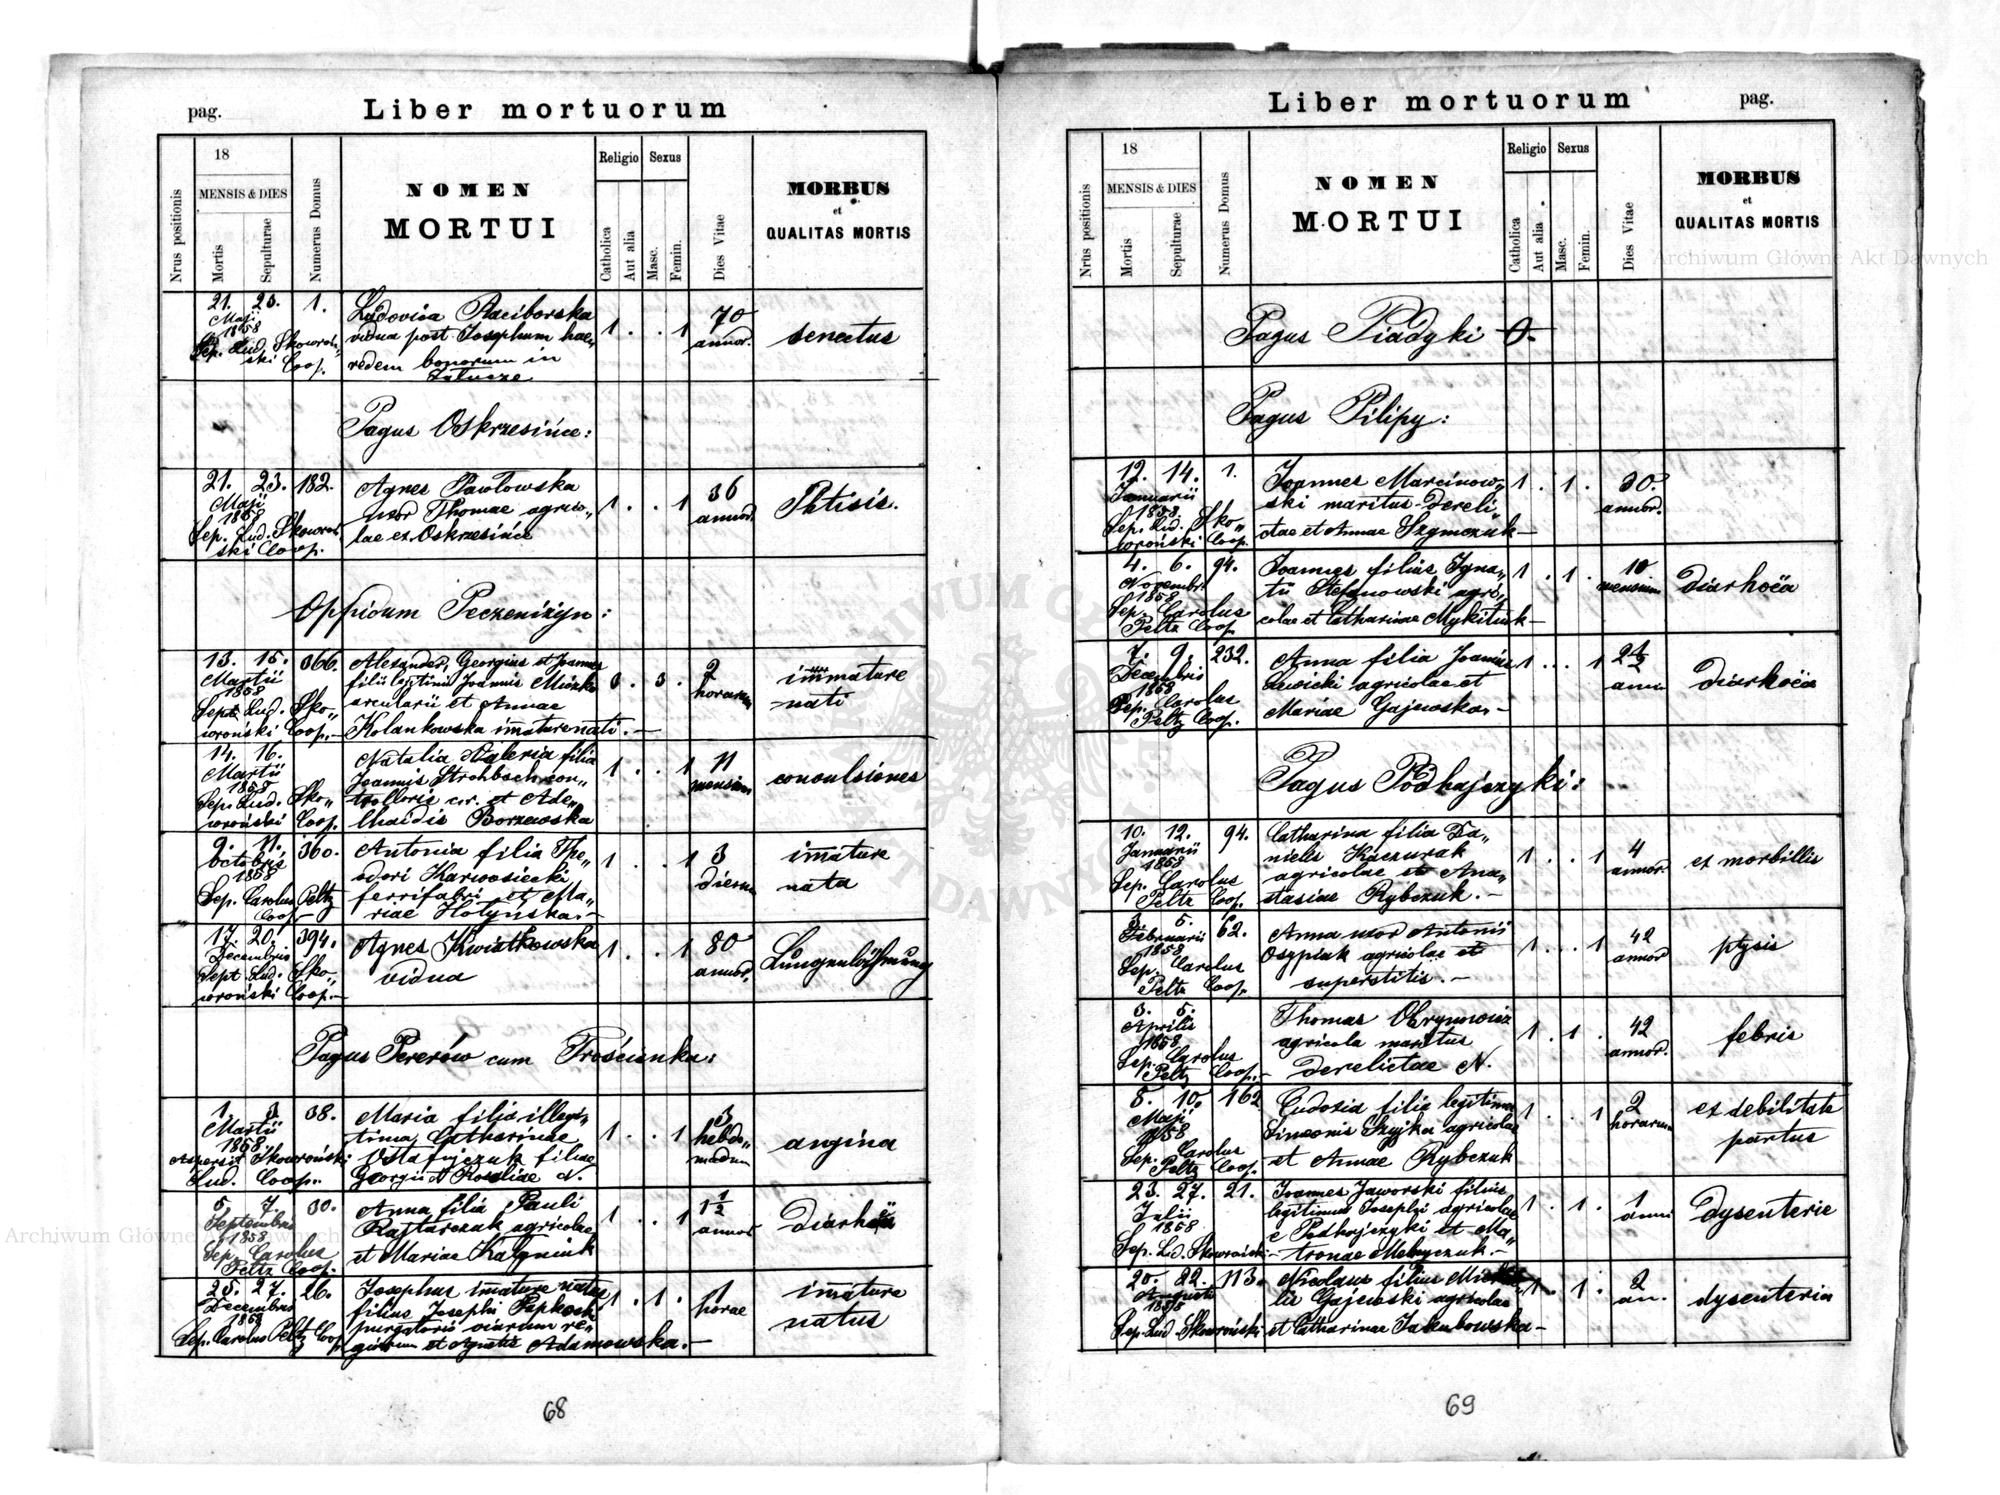 pag.
Liber mortuorum
Nrus positionis
18
MENSIS & DIES
Mortis
Sepulturae
Numerus Domus
NOMEN
MORTUI
Religio
Sexus
Catholica
Aut alia
Masc.
Femin.
Dies Vitae
MORBUS
et
QUALITAS MORTIS
21. 23. 1. Ludovica Raciborska
Maji
1858
vidua post Josephum hae„
redem bonorum in
Załucze
Sep. Lud. Skowroń„
ski Coop.
1 . . 1
70
annor.
senectus
Pagus Oskrzesińce:
21. 23. 182. Agnes Pawłowska
Maji
1858
uxor Thomae agrico„
lae ex Oskrzesińce
Sep. Lud. Skowroń
ski Coop.
1 . . 1
36
annor.
Phtisis.
Oppidum Peczeniżyn:
13. 15. 366. Alexander, Georgius et Joannes
Martii
1858
filii legitimi Joannis
arcularii et Annae
Kolankowska imaturenati. —
Sept Lud. Sko„
wroński Coop. —
3 . 3 .
2
horarum
immature
nati
14. 16. Natalia Valeria filia
Martii
1858
Joannis Strohbach con„
trolloris c.r. et Ade„
lhaidis Borzewska
Sep. Lud. Sko„
wroński Coop.
1 . . 1
11
mensium
convulsiones
9. 11. 360. Antonia filia The„
Octobris
1858
odori Karwosiecki
ferrifabri et Ma„
riae Hołyńska. —
Sep. Carolus Peltz
Coop —
1 . . 1
3
dierum
imature
nata
17. 20. 394. Agnes Kwiatkowska
Decembris
1858
vidua
Sept Lud. Sko„
wroński Coop. —
1 . . 1
80
annor.
Lungenlähmung
Pagus Pererów cum Trościanka:
1. 3 38. Maria filia illegi„
Martii
1858
tima Catharinae
filiae
Georgii et Rosaliae N.
Aspersit Skowroński
Lud. Coop.
1 . . 1
3
hebdo„
madum
angina
5. 7. 30. Anna filia Pauli
Septembris
1858
Rajtarczuk agricolae
et Mariae
Sep. Carolus
Peltz Coop.
1 . . 1
1 1/2
annor
diarhoëa
25. 27. 26. Josephus imature natus
Decembris
1858
filius Josephi
purgatoris viarum re„
giarum et Agnetis Adamowska. —
Sep. Carolus Peltz Coop
1 . 1 .
1
horae
imature
natus
68
Liber mortuorum
pag.
Nrus positionis
18
MENSIS & DIES
Mortis
Sepulturae
Numerus Domus
NOMEN
MORTUI
Religio
Sexus
Catholica
Aut alia
Masc.
Femin.
Dies Vitae
MORBUS
et
QUALITAS MORTIS
Pagus Piadyki O.
Pagus Pilipy:
12. 14. 1. Joannes Marcinow„
Januarii
1858.
ski maritus dereli„
ctae et Annae Szymczuk —
Sep. Lud. Sko„
wroński Coop.
1 . 1 .
30.
annor.
4. 6. 94. Joannes filius Igna„
Novembr.
1858
tii Stefanowski agri„
colae et Catharinae Mykituk —
Sep. Carolus
Peltz Coop
1 . 1 .
10
mensium
diarhoëa
7. 9. 232. Anna filia Joannis
Decembris
1858
Lewicki agricolae et
Mariae Gajewska. —
Sep. Carolus
Peltz Coop.
1 . . . 1
2 1/2
ann.
diarhoëa
Pagus Podhajczyki:
10. 12. 94. Catharina filia Da„
Januarii
1858
nielis Kaczurak
agricolae et Ana„
stasiae Rybczuk. —
Sep. Carolus
Peltz Coop.
1 . . 1
4
annor.
ex morbillis
3. 5. 62. Anna uxor Antonii
Februarii
1858
Osypiuk agricolae et
superstitis. —
Sep. Carolus
Peltz Coop.
1 . . . 1
42
annor
ptysis
3. 5. Thomas Obrynowicz
Aprilis
1858
agricola maritus
derelictae N.
Sep. Carolus
Peltz Coop. —
1 . 1 .
42
annor.
febris
8. 10. 162 Eudosia filia legitima
Maji
1858
Simeonis Szyjka agricolae
et Annae Rybczuk
Sep. Carolus
Peltz Coop.
1 . . 1
2
horarum
ex debilitate
partus
23. 27. 21. Joannes Jaworski filius
Julii
1858
legitimus Josephi agricolae
e Podhajczyki et Ma„
tronae Melnyczuk. —
Sep. Lud. Skowroński
1 . 1 .
1
anni
dysenterie
20. 22. 113. Nicolaus filius Micha„
Augusti
1858
lis Gajewski agricolae
et Catharinae Jakubowska —
Sep. Lud Skowroński
1 . 1 .
2
an.
dysenteria
69
Archiwum Główne Akt Dawnych
Archiwum Główne Akt Dawnych
ARCHIWUM GŁÓWNE AKT DAWNYCH